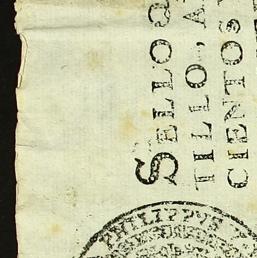 SELLO Q
TILLO, A
CIENTOS
PHILIPPVS